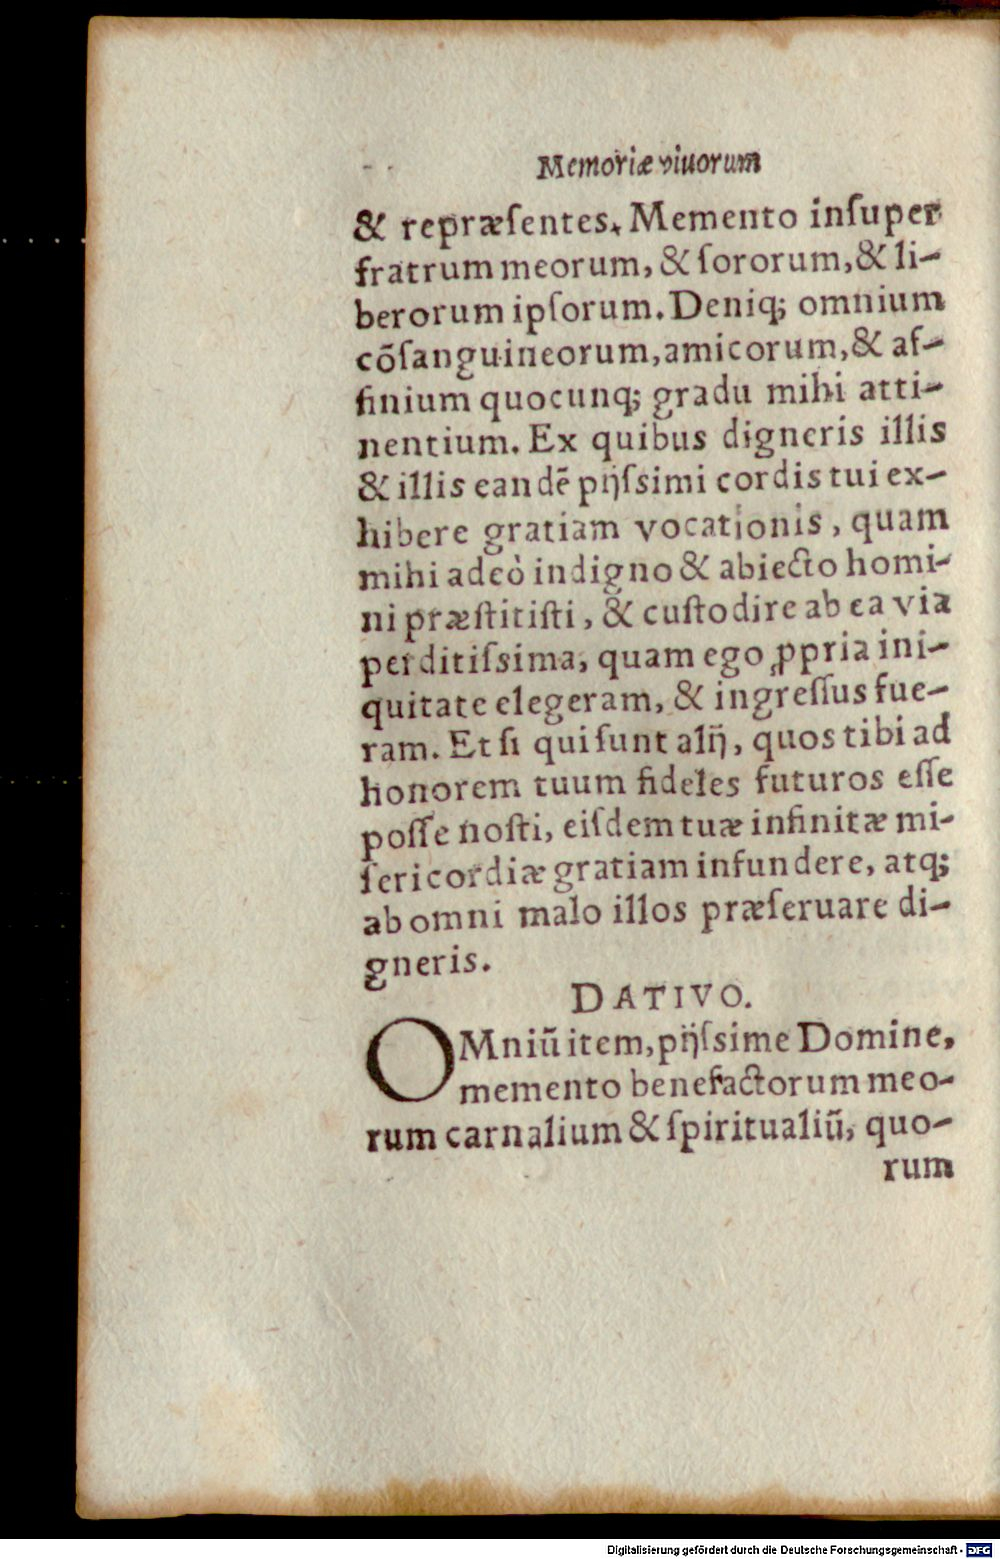 Memoriæ viuorum
& repræſentes. Memento inſuper
fratrum meorum, & ſororum, & li-
berorum ipſorum. Deniq; omnium
cõſanguineorum, amicorum, & af-
finium quocunq; gradu mihi atti-
nentium. Ex quibus digneris illis
& illis eandẽ pijſsimi cordis tui ex-
hibere gratiam vocationis, quam
mihi adeò indigno & abiecto homi-
ni præſtitiſti, & cuſtodire ab ea via
perditiſsima, quam ego ꝓpria ini-
quitate elegeram, & ingreſſus fue-
ram. Et ſi qui ſunt alij, quos tibi ad
honorem tuum fideles futuros eſſe
poſſe noſti, eiſdem tuæ infinitæ mi-
ſericordiæ gratiam infundere, atq;
ab omni malo illos præſeruare di-
gneris.
DATIVO.
OMniũ item, pijſsime Domine,
memento benefactorum meo-
rum carnalium & ſpiritualiũ, quo-
rum
Digitalisierung gefördert durch die Deutsche Forschungsgemeinschaft - DFG